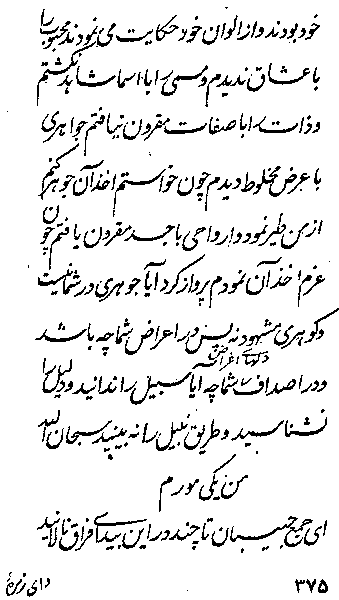 خود بودند و از الوان خود حکایت می نمودند محبوب را
با عشاق ندیدم و مسمی را با اسما مشاهد نگشتم
و ذات را با صفات مقرون نیافتم جواهری
با عرض مخلوط دیدم چون خواستم اخذ آن جوهر کنم
از من طیر نمود و ارواحی با جسد مقرون یافتم چون
عزم اخذ آن نمودم پرواز کرد آیا جوهری در شما نیست
و گوهری مشهود نه پس در اعراض شما چه باشد
و در اصداف شما چه آیا سبیل را ندانید و دلیل را
نشناسید و طریق نبیل را نه بینید سبحان الله
من یکی مورم
ای جمع حبیبان تا چند در این بیدای فراق نالانید
و ای زمرهٔ
۳۷۵